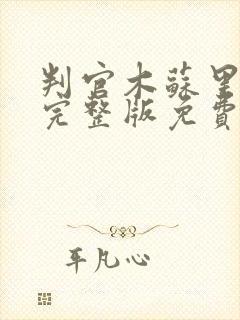 判官木蘇里
完整版免費
平凡心